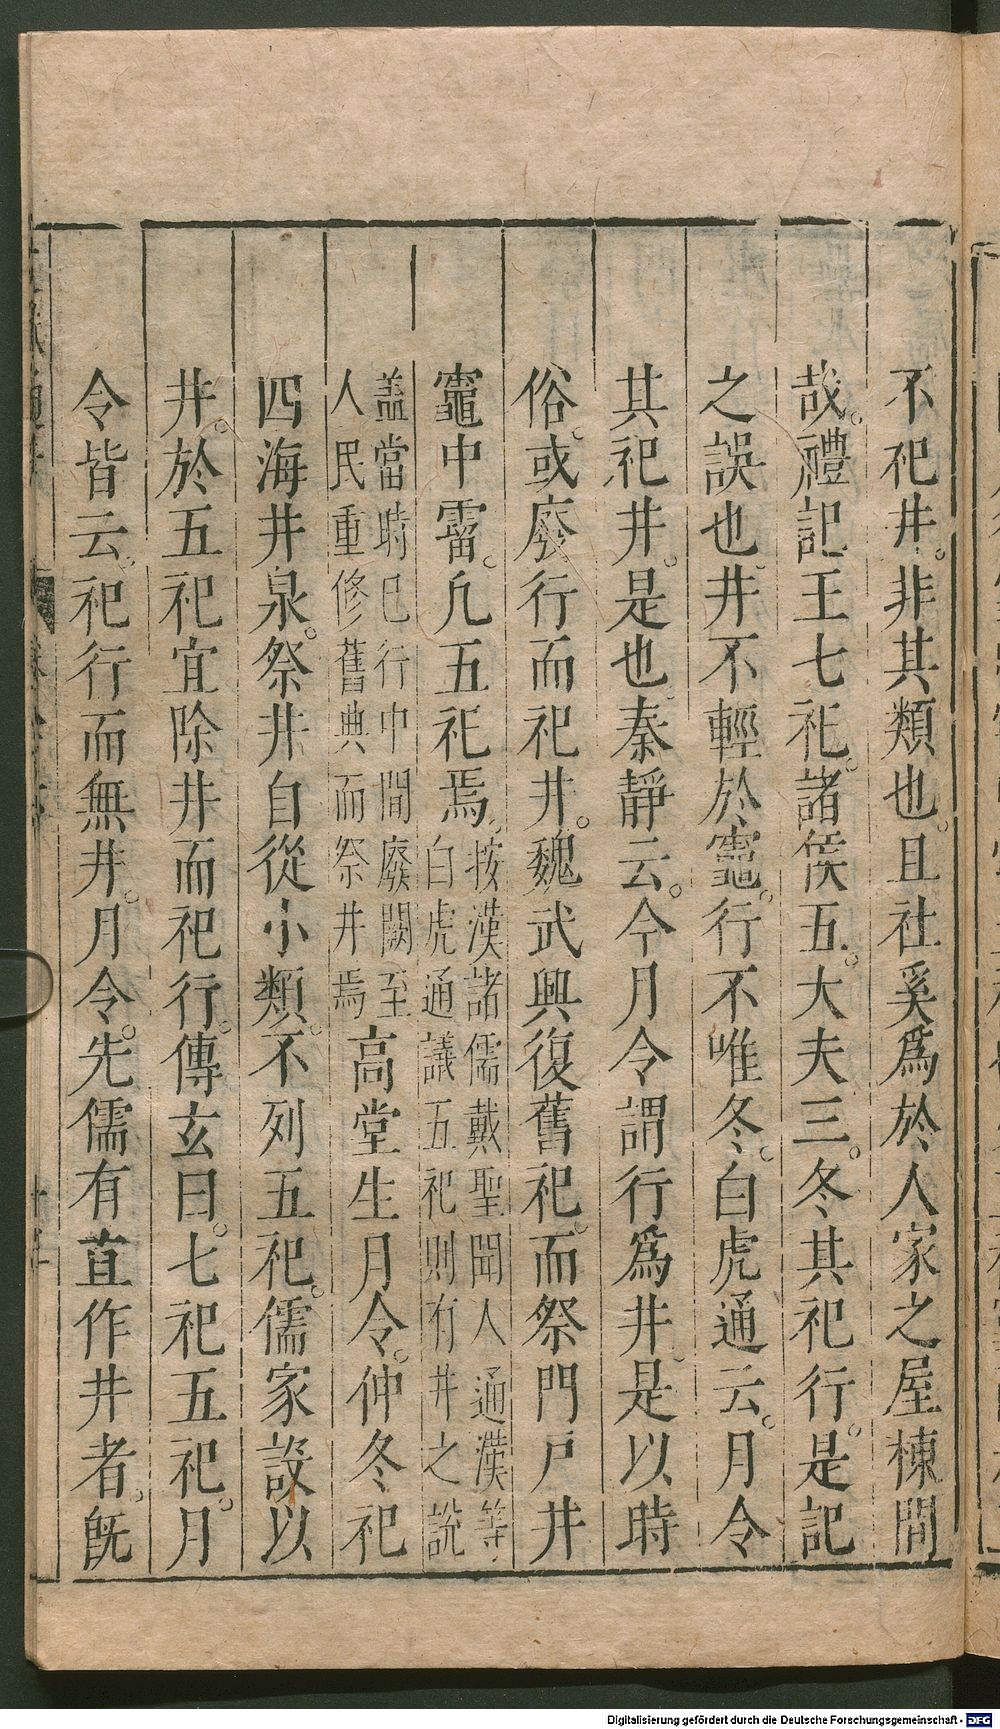 不祀井。非其類也。且社奚爲於人家之屋棟間
哉。禮記王七祀。諸侯五。大夫三。冬其祀行。是記
之誤也。井不輕於竈。行不唯冬。白虎通云。月令
其祀井。是也。秦靜云。今月令謂行爲井。是以時
俗。或廢行而祀井。魏武興復舊祀。而祭門戸井
竈中霤。凢五祀焉。
按漢諸儒戴聖聞人通漢等
白虎通議五祀則有井之說
盖當時已行中間廢闕至
人民重修舊典而祭井焉
高堂生月令。仲冬祀
四海井泉。祭井自從小類。不列五祀。儒家設以
井。於五祀宜除井而祀行。傳玄曰。七祀五祀。月
令皆云。祀行而無井。月令。先儒有直作井者。旣
Digitalisierung gefördert durch die Deutsche Forschungsgemeinschaft - DFG